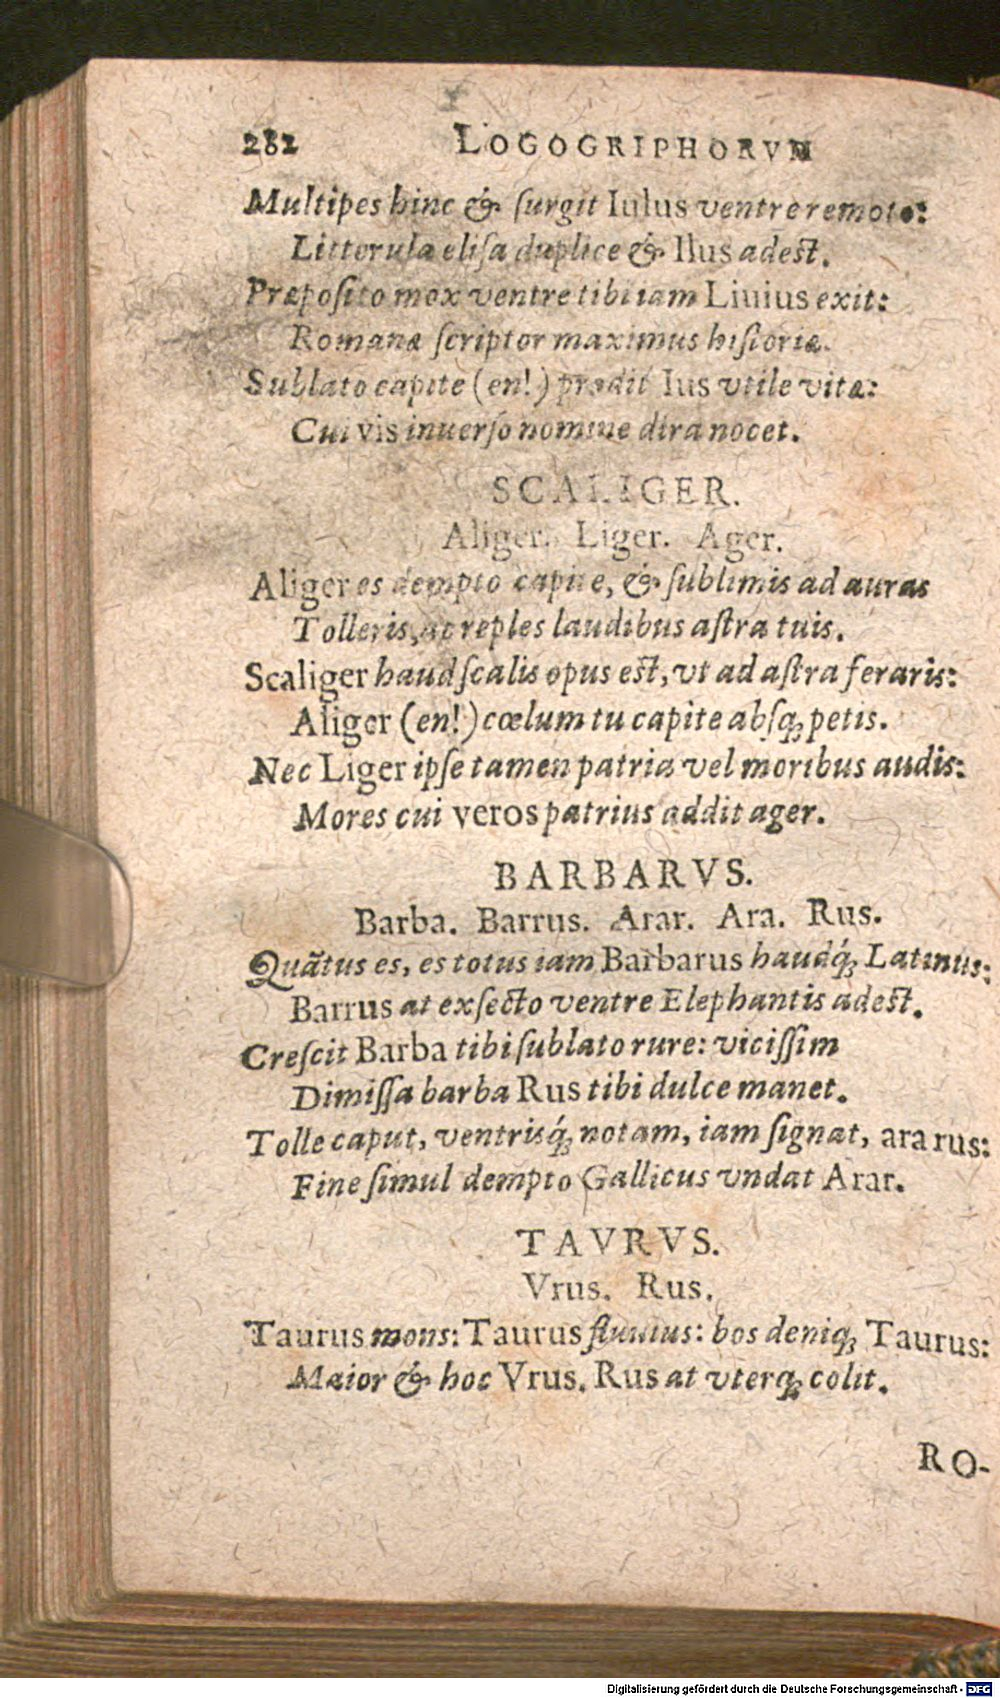 282 LOGOGRIPHORVM
Multipes hinc & ſurgit Iulus ventre remoto:
Litterula eliſa duplice & Ilus adest.
Præpoſito mox ventre tibi iam Liuius exit:
Romanæ ſcriptor maximus hiſtoriæ.
Sublato capite (en!) prodit Ius vtile vitæ:
Cui vis inuerſo nomine dira nocet.
SCALIGER.
Aliger. Liger. Ager.
Aliger es dempto capite, & ſublimis ad auras
Tolleris, ac reples laudibus aſtra tuis.
Scaliger haud ſcalis opus eſt, vt ad aſtra feraris:
Aliger (en!) cœlum tu capite abſq; petis.
Nec Liger ipſe tamen patria vel moribus audis:
Mores cui veros patrius addit ager.
BARBARVS.
Barba. Barrus. Arar. Ara. Rus.
Quãtus es, es totus iam Barbarus haudq́; Latinus:
Barrus at exſecto ventre Elephantis adeſt.
Creſcit Barba tibi ſublato rure: viciſſim
Dimiſſa barba Rus tibi dulce manet.
Tolle caput, ventrisq́; notam, iam ſignat, ara rus:
Fine ſimul dempto Gallicus vndat Arar.
TAVRVS.
Vrus. Rus.
Taurus mons: Taurus fluuius: bos deniq; Taurus:
Maior & hoc Vrus. Rus at vterq; colit.
RO-
Digitalisierung gefördert durch die Deutsche Forschungsgemeinschaft - DFG